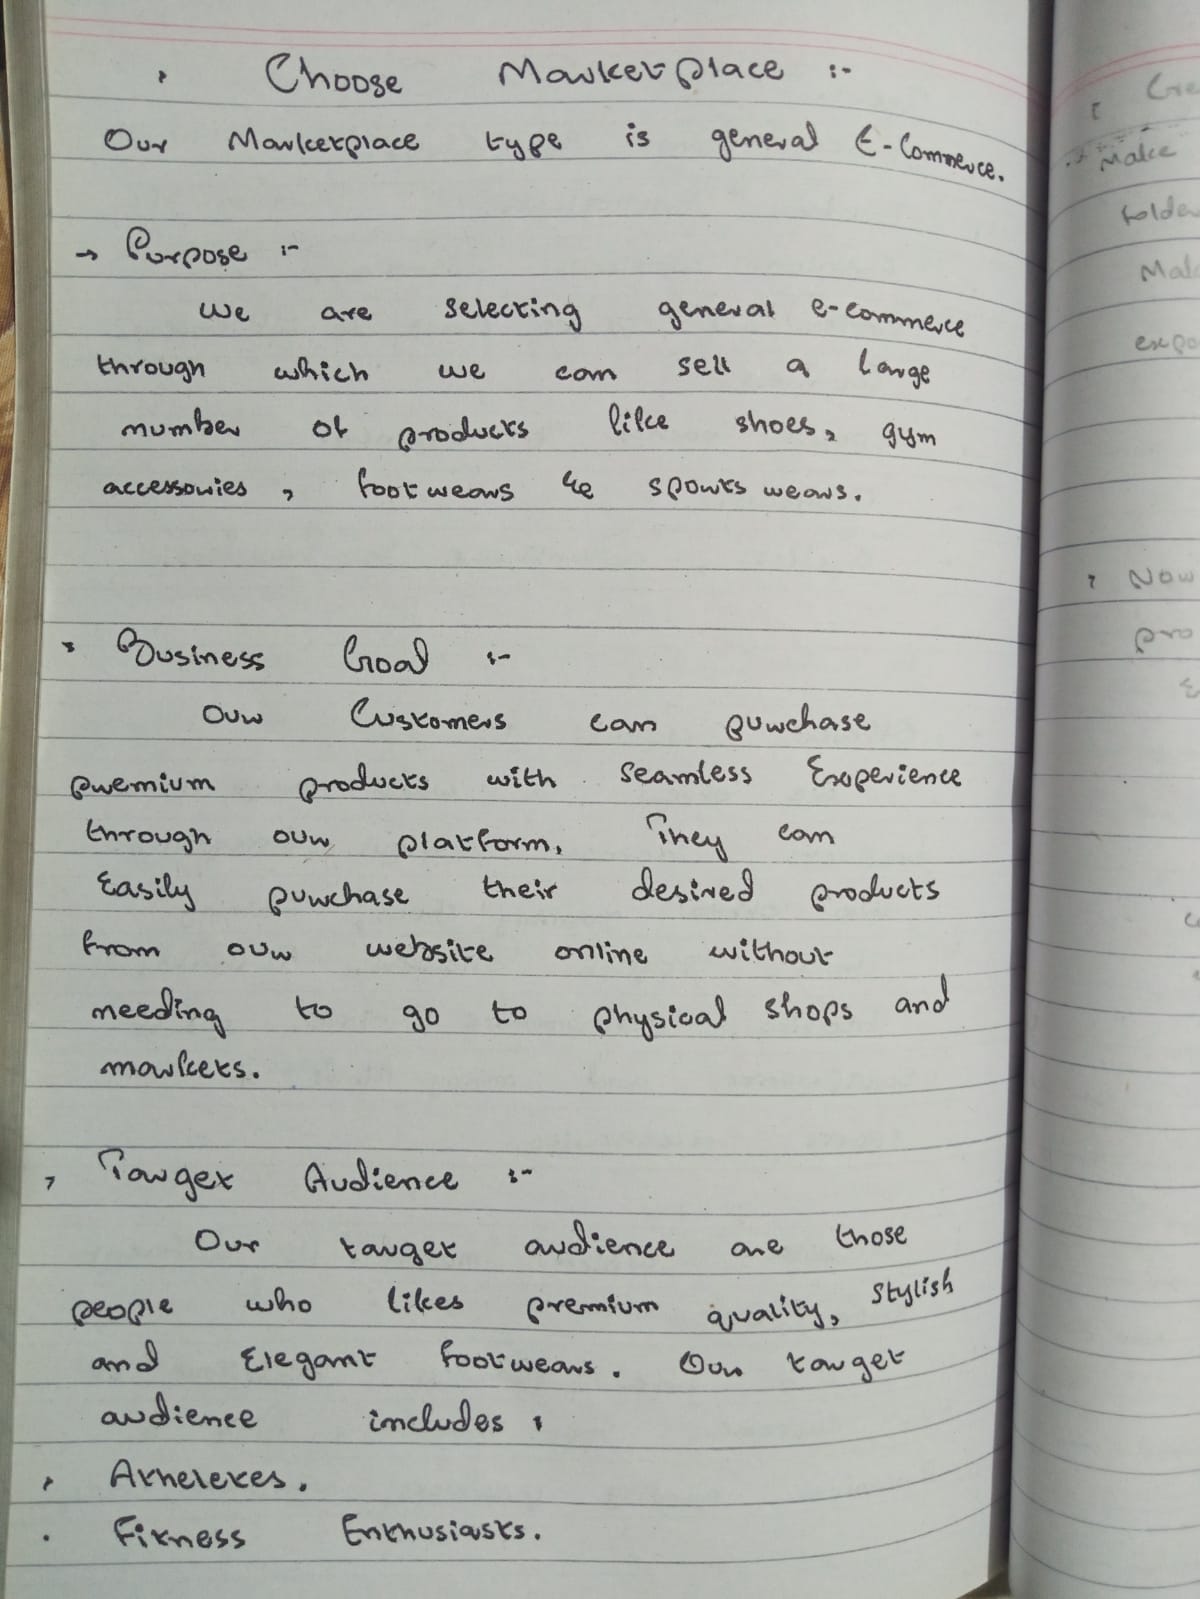 Choose Marketplace :-
Our Marketplace type is general E-Commerce.
→ Purpose :-
We are selecting general e-commerce
through which we can sell a large
number of products like shoes, gym
accessories, footwears & sports wears.
Business Goal :-
Our Customers can purchase
premium products with seamless Experience
through our platform. They can
Easily purchase their desired products
from our website online without
needing to go to physical shops and
markets.
Target Audience :-
Our target audience are those
people who likes premium quality, stylish
and Elegant footwears. Our target
audience includes :
• Atheletes.
• Fitness Enthusiasts.
Make
Now